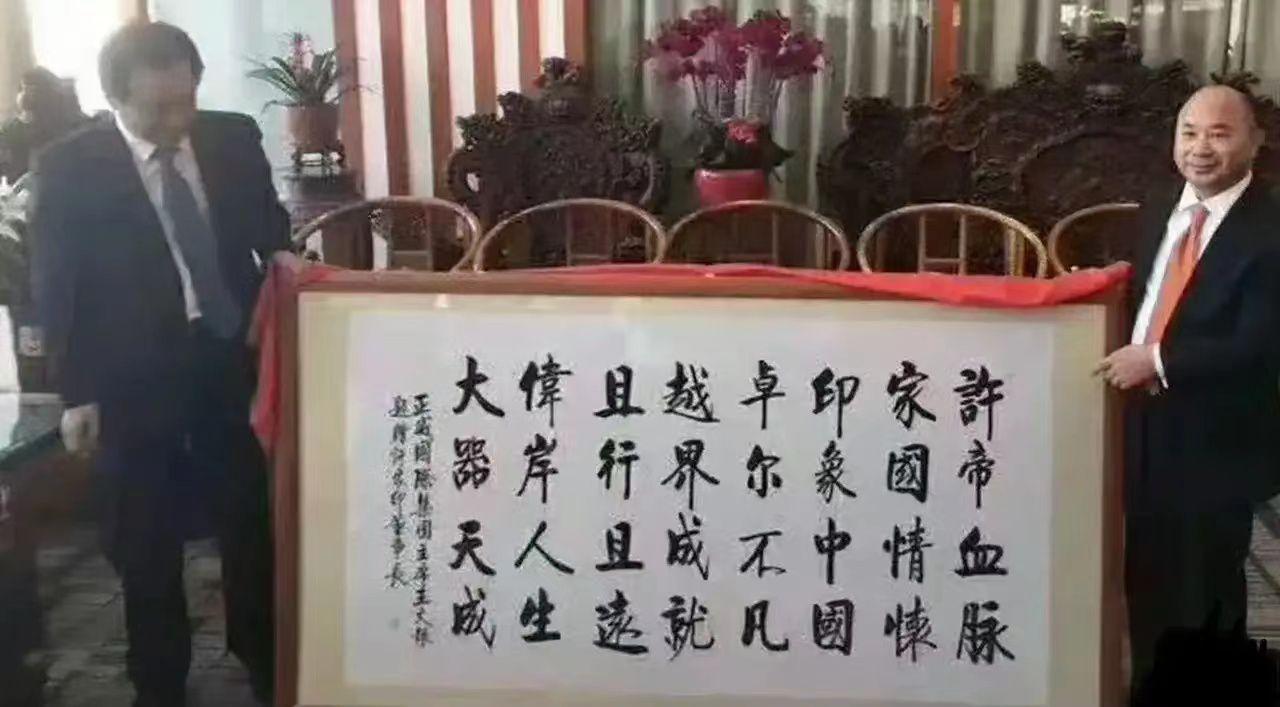 許帝血脉
家國情懷
印象中國
卓尔不凡
越界成就
且行且遠
偉岸人生
大器天成
正威國際集團主席王文銀
題贈許家印董事長